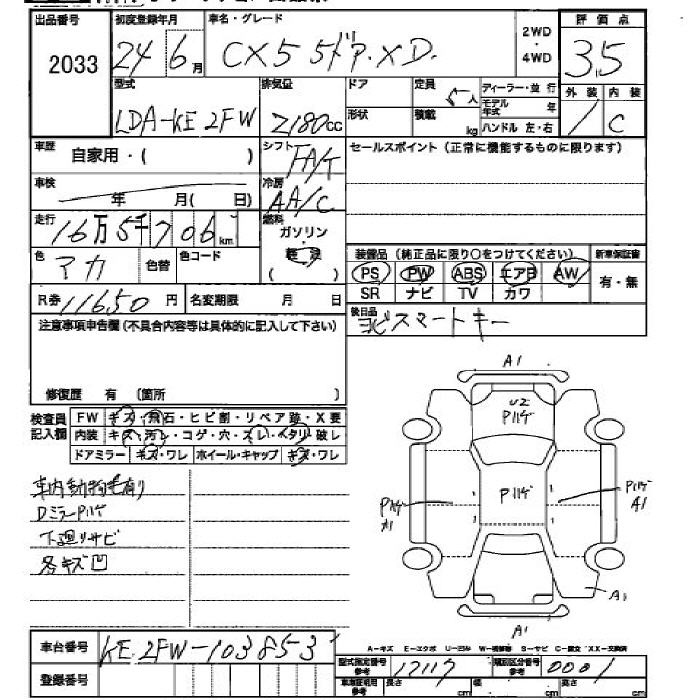 出品番号 初度登録年月 車名・グレード 2WD・4WD 評価点
2033 24 6月 CX5 5ドア.XD. 3.5
型式 排気量 ドア 定員 5人 ディーラー・並行 外装 内装
LDA-KE2FW 2180cc 形状 積載 kg モデル年式 年 ハンドル 左・右 / C
車歴 自家用・( ) シフト FA/T セールスポイント(正常に機能するものに限ります)
車検 年 月( 日) 冷房 AA/C
走行 16万5千706km 燃料 ガソリン・
色 マカ 色替 色コード ( ) 装備品(純正品に限り○をつけてください) 新車保証書
PS PW ABS エアB AW 有・無
R券 11650円 名変期限 月 日 SR ナビ TV カワ
注意事項申告欄(不具合内容等は具体的に記入して下さい) 後日品 スマートキー
修復歴 有 (箇所 )
検査員記入欄 FW キズ・飛石・ヒビ割・リペア跡・X要
内装 キズ・汚レ・コゲ・穴・スレ・ヘタリ・破レ
ドアミラー キズ・ワレ ホイール・キャップ キズ・ワレ
車内動物毛有り
DミラーPハゲ
下廻りサビ
各キズ凹
A1
U2
Pハゲ
Pハゲ
Pハゲ A1
Pハゲ A1
A1
A1
A-キズ E-エクボ U-凹み W-補修跡 S-サビ C-腐食 XX-交換済
車台番号 KE2FW-103853
型式指定番号 参考 17117 類別区分番号 参考 0001
登録番号 車庫証明用 参考 長さ cm 幅 cm 高さ cm